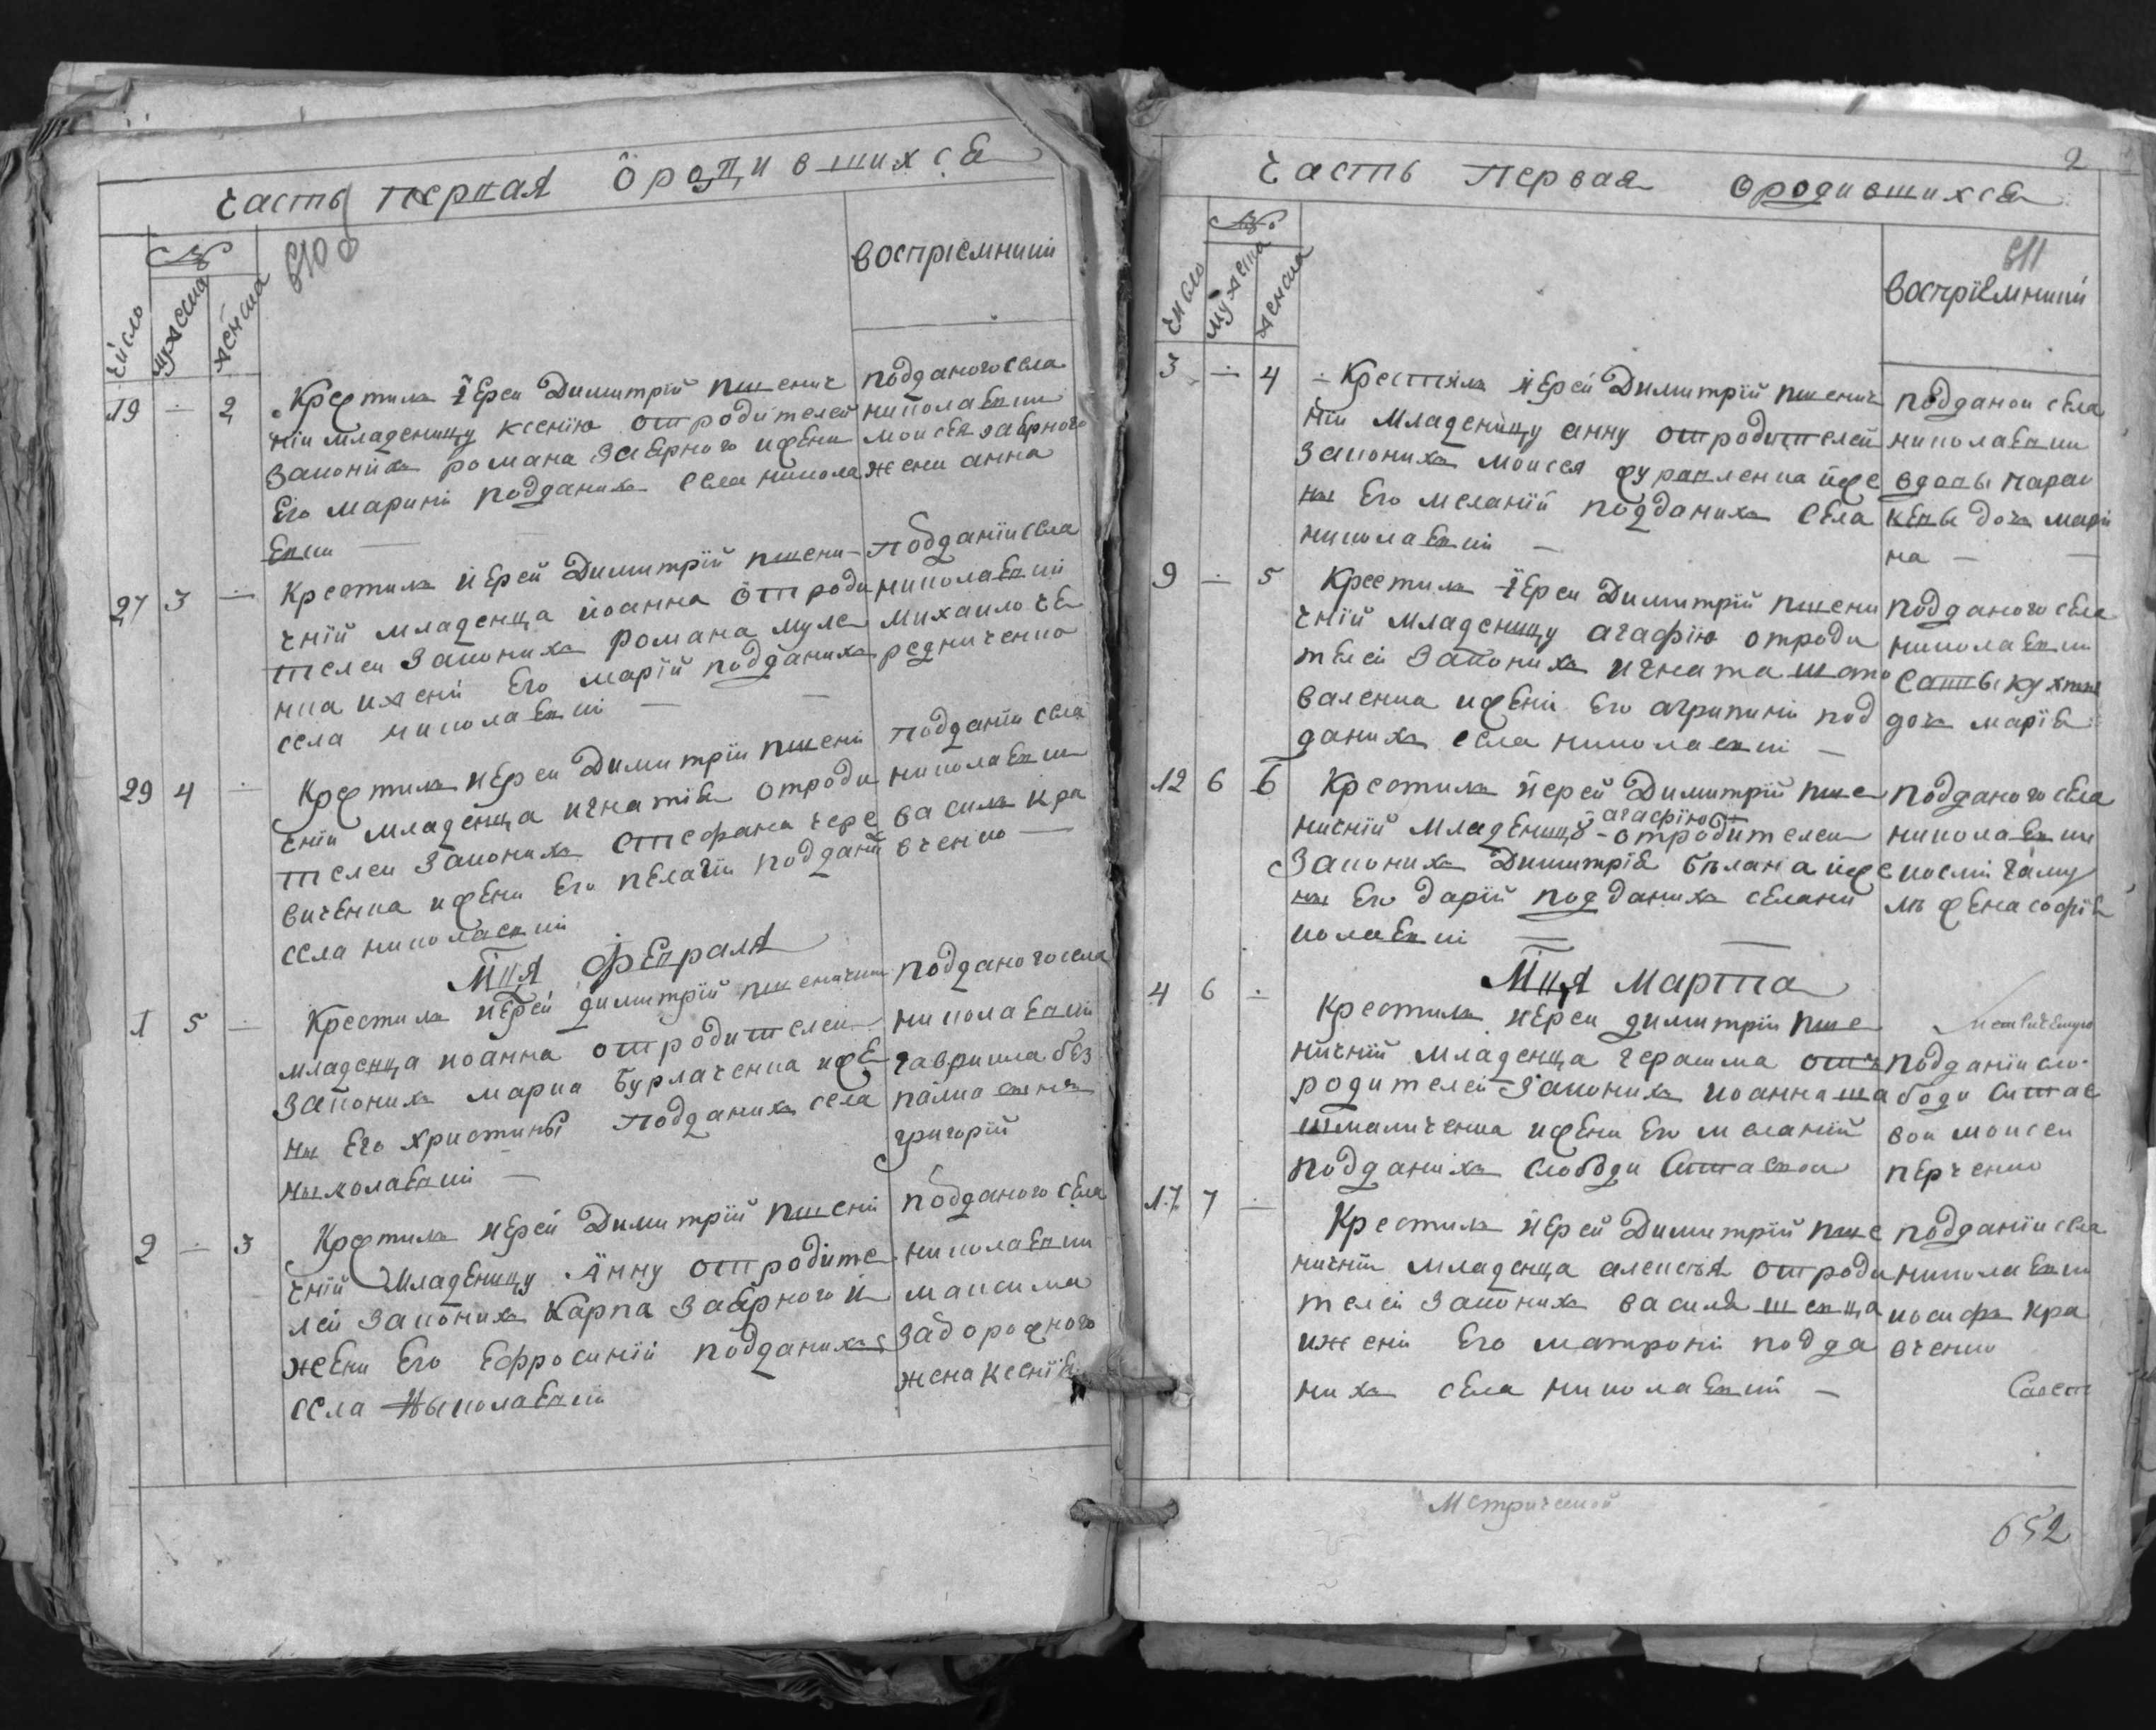 Часть первая о родившихся
610
№
число
мужеска
женска
воспріемники
19 — 2
Крестилъ іерей Димитрій пшенич
ній младеницу ксенію отродителей
законихъ романа заѣрного ижени
Его марини подданихъ села никола
Евки —
подданого села
николаевки
моисея заѣрного
жени анна
27 3 —
Крестилъ іерей Димитрій пшени-
чній младенца иоанна отроди
телей законихъ романа муле
нка ижени Его маріи подданихъ
села николаевки —
подданій села
николаевки
михаило че
редниченко
29 4 —
Крестилъ іерей Димитрій пшени
чній младенца игнатія отроди
телей законихъ стефана чере
виченка ижени Его пелагіи поддани
села николаевки
подданій села
николаевки
василь кра
вченко —
Мця февраля
1 5 —
Крестилъ іерей димитрій пшенични
младенца иоанна отродителей
законихъ марка бурлаченка иже
ны Его христины подданихъ села
ныколаевки —
подданого села
николаевки
гавриила без
палка синъ
григорій
2 — 3
Крестилъ іерей Димитрій пшени
чній младеницу Анну отродите
лей законихъ карпа заѣрного и
жени Его Ефросиніи подданихъ
села ныколаевки
подданого села
николаевки
максима
задорожного
жена ксенія
2
Часть первая о родившихся
611
№
число
мужеска
женска
воспріемники
3 — 4
Крестилъ іерей Димитрій пшенич
ній младеницу анну отродителей
законихъ моисея журавленка иже
ны Его меланіи подданихъ села
николаевки —
подданои села
николаевки
вдовы парас
кевы дочь мари
на —
9 — 5
Крестилъ іерей Димитрій пшени
чній младеницу агафію отроди
телей законихъ игната шапо
валенка ижени Его агрипини под
данихъ села николаевки —
подданого села
николаевки
саввы
дочь марія
12 6 6
Крестилъ іерей Димитрій пше
ничній младеницу агафію отродителей
законихъ Димитрія билана иже
ны Его даріи подданихъ села ни
колаевки —
подданого села
николаевки
жена софія
Мця марта
4 6 —
Крестилъ іерей димитрій пше
ничній младенца герасима отъ
родителей законихъ иоанна ша
шмалченка ижени Его меланіи
подданихъ слободи
подданій сло-
боди
вои моисей
перченко
17 7 —
Крестилъ іерей Димитрій пше
ничній младенца алексѣя отроди
телей законихъ василя шевца
ижени Его матрони подда
нихъ села николаевки —
подданій села
николаевки
иосифъ кра
вченко
Метрической
652